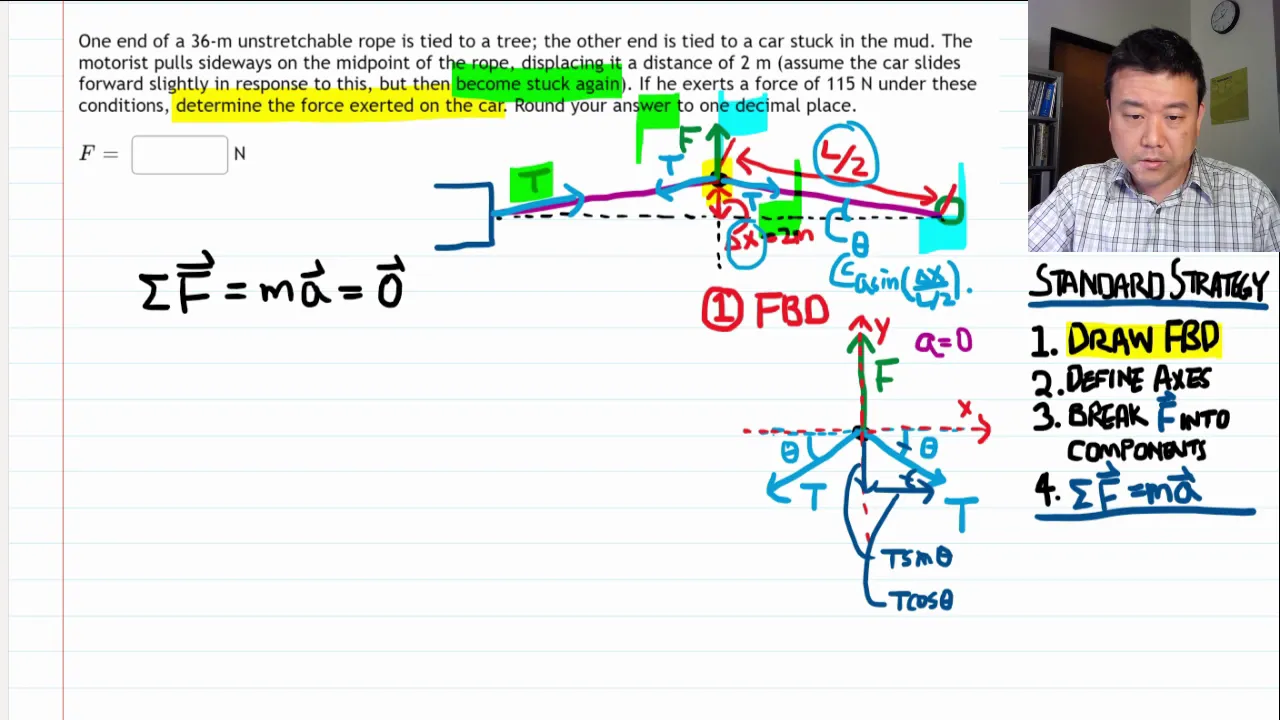 One end of a 36-m unstretchable rope is tied to a tree; the other end is tied to a car stuck in the mud. The
motorist pulls sideways on the midpoint of the rope, displacing it a distance of 2 m (assume the car slides
forward slightly in response to this, but then become stuck again). If he exerts a force of 115 N under these
conditions, determine the force exerted on the car. Round your answer to one decimal place.
F = N
F
T
L/2
T
T
Δx = 2m
θ
asin(Δx/L/2).
ΣF⃗ = ma⃗ = 0⃗
① FBD
y
a=0
F
x
θ
θ
T
T
Tsinθ
Tcosθ
STANDARD STRATEGY
1. DRAW FBD
2. DEFINE AXES
3. BREAK F⃗ INTO
COMPONENTS
4. ΣF⃗ = ma⃗